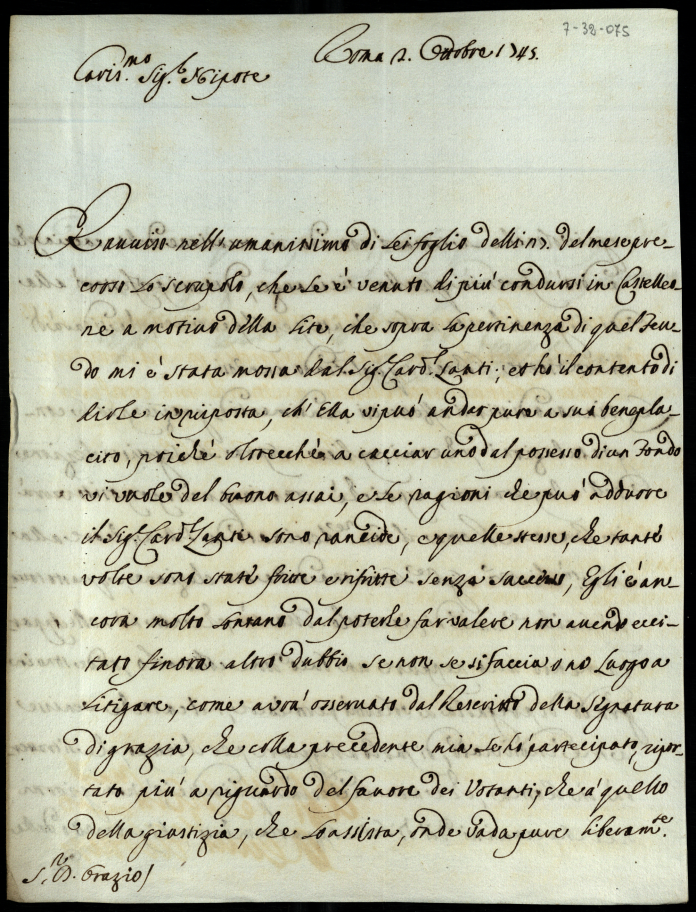 7-32-075
Roma 2. Ottobre 1745.
Caris.mo Sig.r Nipote
Ravviso nell'umanissimo di Lei foglio delli 17. del mese pre-
corso lo scrupolo, che Le è venuto di più condursi in Castelleo-
ne a motivo della Lite, che sopra la pertinenza di quel Feu-
do mi è stata mossa dal Sig.r Card.l Lanti; et hò il contento di
dirle in risposta, ch'Ella si può andar pure a suo benepla-
cito, poichè oltrecchè a cacciar uno dal possesso di un Fondo
vi vuole del buono assai, e le ragioni che può addurre
il Sig.r Card.l Lanti sono rancide, e quelle stesse, che tante
volte sono state fritte e rifritte senza successo, Egli è an-
cora molto lontano dal poterle far valere non avendo ecci-
tato finora altro dubbio se non se si faccia o no Luogo a
Litigare, come avrà osservato dal Rescritto della Signatura
di grazia, che colla precedente mia Le hò partecipato, ripor-
tato più a riguardo del favore dei Votanti, che à quello
della giustizia, che lo assista, onde vada pure liberam.te
S.r D. Orazio /